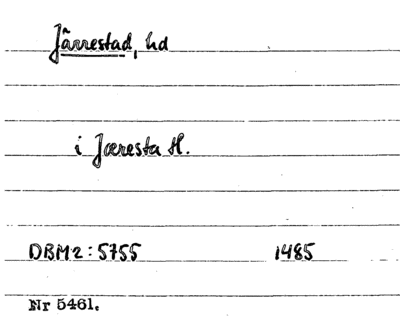 Järrestad, hd
i Jæresta H.
DBM2:5755 1485
Nr 5461.